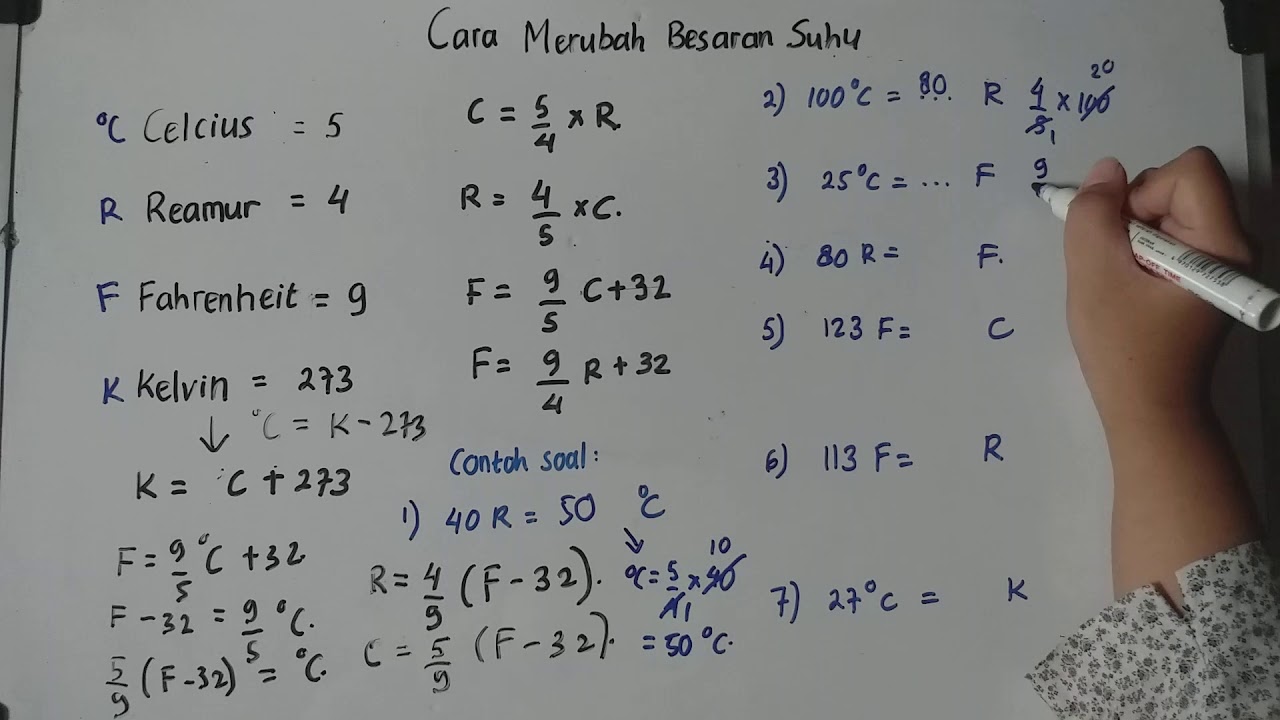 Cara Merubah Besaran Suhu
°C Celcius = 5
R Reamur = 4
F Fahrenheit = 9
K Kelvin = 273
↓ °C = K - 273
K = C + 273
F = 9/5 °C + 32
F - 32 = 9/5 °C.
5/9 (F - 32) = °C.
C = 5/4 × R
R = 4/5 × C.
F = 9/5 C + 32
F = 9/4 R + 32
Contoh soal:
1) 40 R = 50 °C
↓
°C = 5/4 1 × 40 10
= 50 °C.
R = 4/9 (F - 32).
C = 5/9 (F - 32).
2) 100°C = 80 R 4/5 1 × 100 20
3) 25°C = ... F 9
4) 80 R = F.
5) 123 F = C
6) 113 F = R
7) 27°C = K